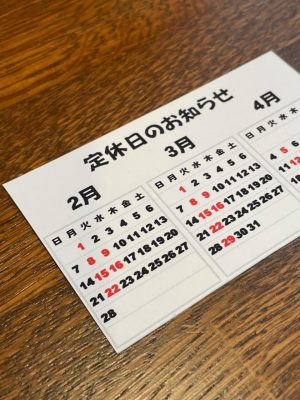 定休日のお知らせ
2月
日 月 火 水 木 金 土
1 2 3 4 5 6
7 8 9 10 11 12 13
14 15 16 17 18 19 20
21 22 23 24 25 26 27
28
3月
日 月 火 水 木 金 土
1 2 3 4 5 6
7 8 9 10 11 12 13
14 15 16 17 18 19 20
21 22 23 24 25 26 27
28 29 30 31
4月
日 月 火
4 5 6
11 12
18 19
25 26